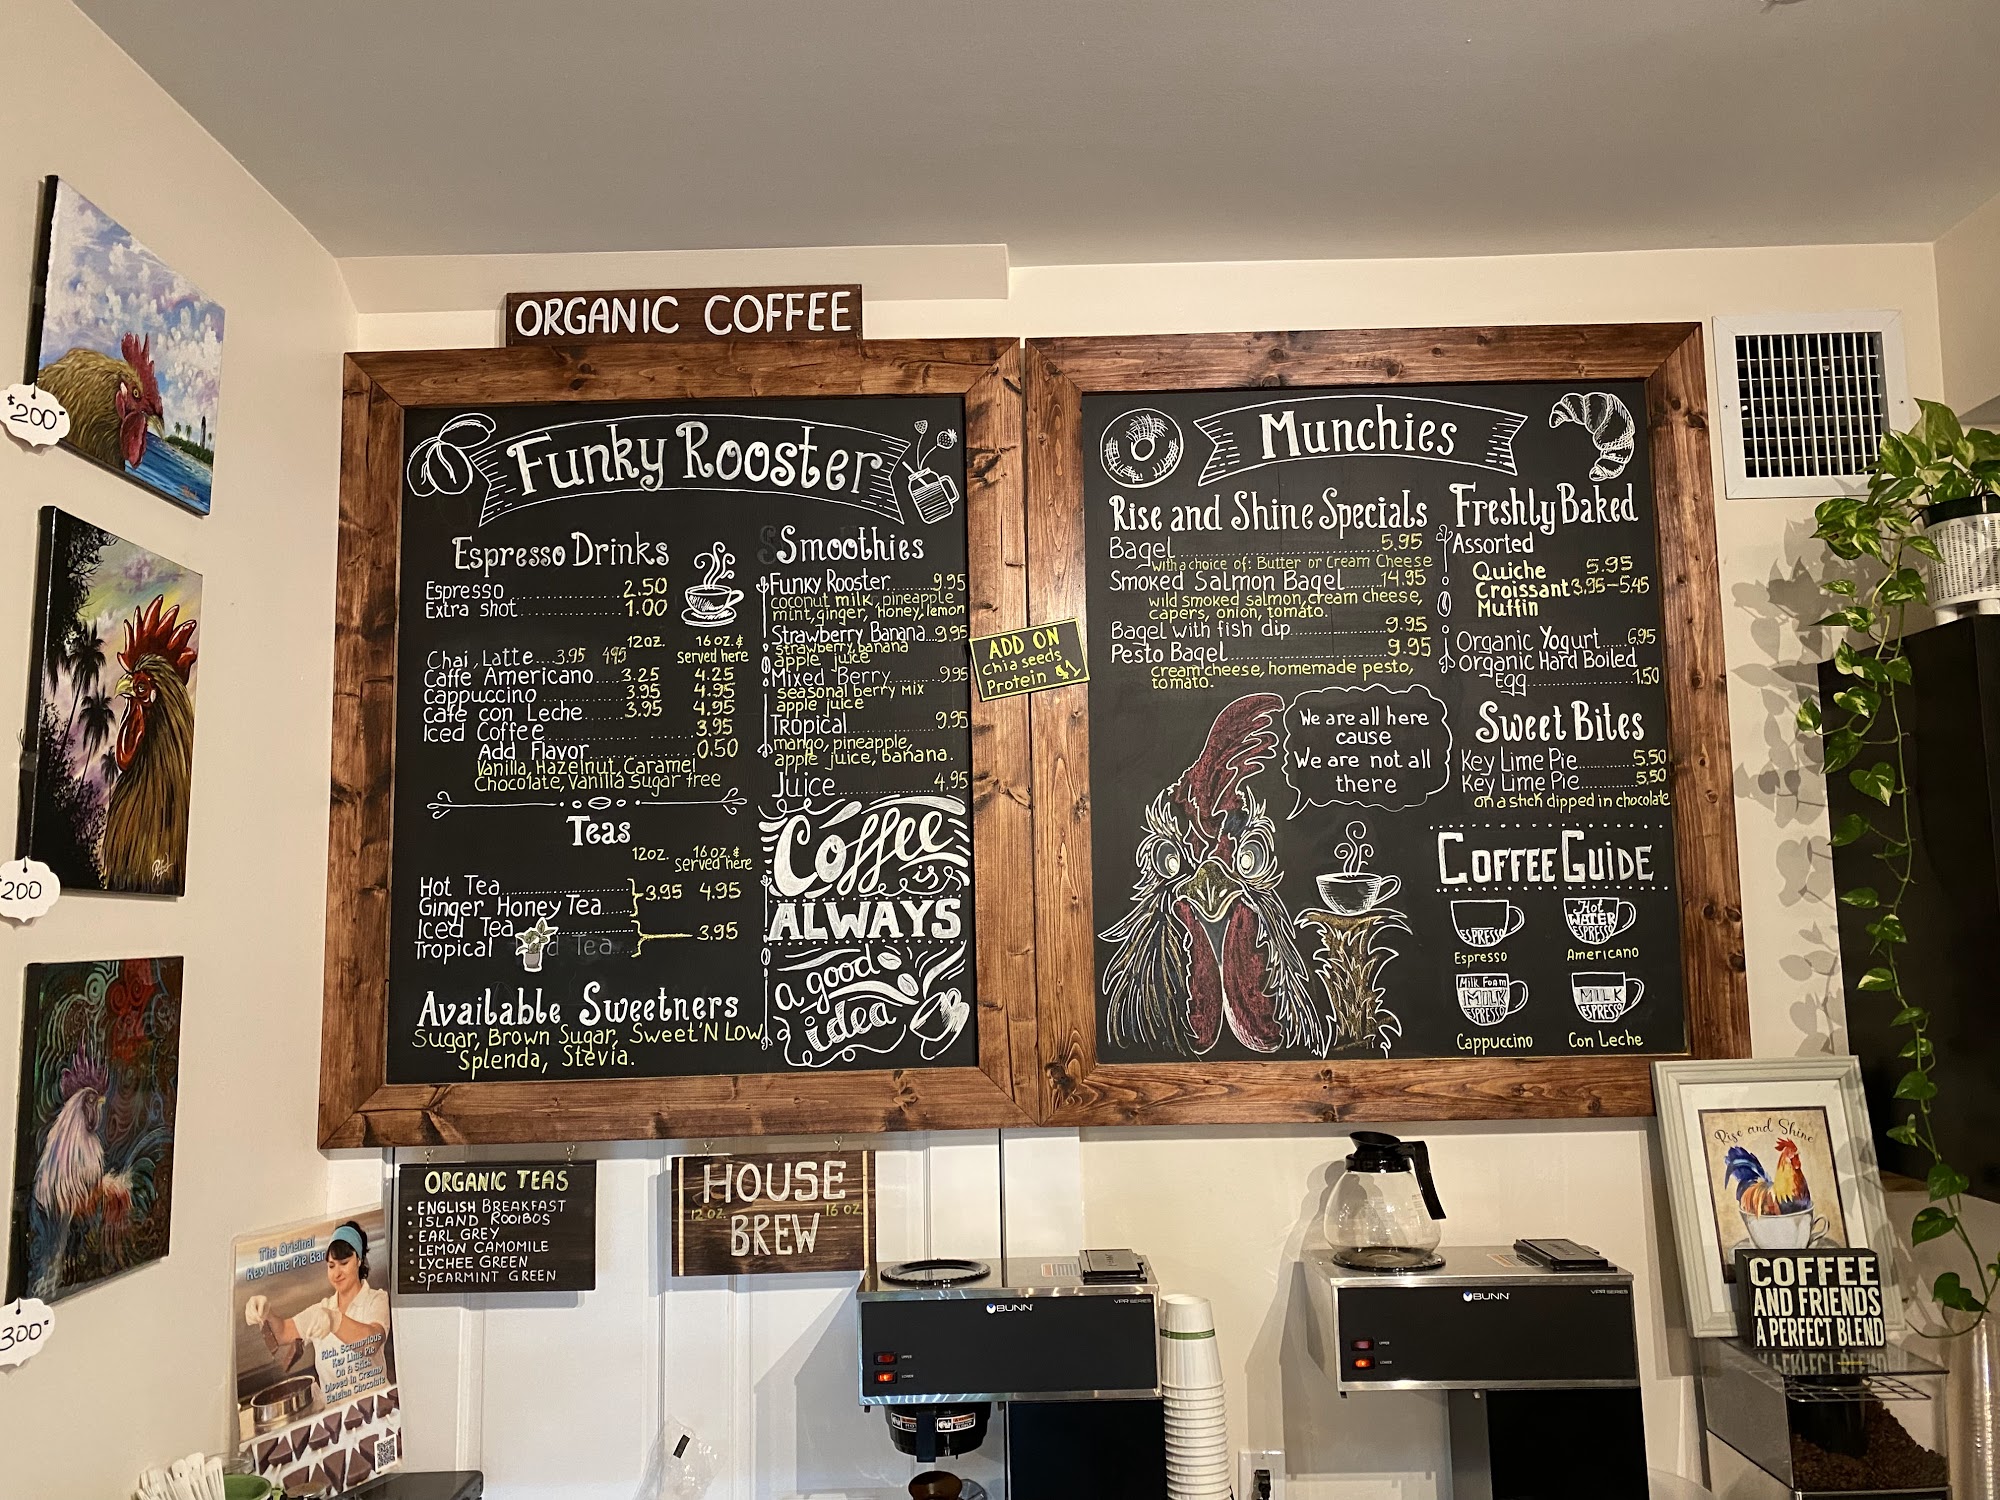 ORGANIC COFFEE
Funky Rooster
Espresso Drinks
Espresso 2.50
Extra shot 1.00
12oz. 16oz. &
served here
Chai Latte 3.95 4.95
Caffe Americano 3.25 4.25
Cappuccino 3.95 4.95
Cafe con Leche 3.95 4.95
Iced Coffee 3.95
Add Flavor 0.50
Vanilla, Hazelnut, Caramel
Chocolate, Vanilla Sugar free
Teas
12oz. 16oz. &
served here
Hot Tea
Ginger Honey Tea 3.95 4.95
Iced Tea
Tropical Tea 3.95
Available Sweetners
Sugar, Brown Sugar, Sweet'N Low,
Splenda, Stevia.
Smoothies
Funky Rooster 9.95
coconut milk, pineapple
mint, ginger, honey, lemon
Strawberry Banana 9.95
strawberry, banana
apple juice
Mixed Berry 9.95
seasonal berry mix
apple juice
Tropical 9.95
mango, pineapple,
apple juice, banana.
Juice 4.95
Coffee
is
ALWAYS
a good
idea
ADD ON
Chia seeds
Protein $1
Munchies
Rise and Shine Specials
Bagel 5.95
with a choice of: Butter or Cream Cheese
Smoked Salmon Bagel 14.95
wild smoked salmon, cream cheese,
capers, onion, tomato.
Bagel with fish dip 9.95
Pesto Bagel 9.95
cream cheese, homemade pesto,
tomato.
We are all here
cause
We are not all
there
Freshly Baked
Assorted
Quiche 5.95
Croissant 3.95-5.45
Muffin
Organic Yogurt 6.95
Organic Hard Boiled
Egg 1.50
Sweet Bites
Key Lime Pie 5.50
Key Lime Pie 5.50
on a stick dipped in chocolate
COFFEE GUIDE
ESPRESSO
Espresso
Hot
WATER
ESPRESSO
Americano
Milk Foam
MILK
ESPRESSO
Cappuccino
MILK
ESPRESSO
Con Leche
$200
200
300
ORGANIC TEAS
• ENGLISH BREAKFAST
• ISLAND ROOIBOS
• EARL GREY
• LEMON CAMOMILE
• LYCHEE GREEN
• SPEARMINT GREEN
HOUSE
12 OZ. 16 OZ.
BREW
The Original
Key Lime Pie Bar
Rich, Scrumptious
Key Lime Pie
On A Stick
Dipped in Creamy
Belgian Chocolate
BUNN
VPR SERIES
BUNN
VPR SERIES
Rise and Shine
COFFEE
AND FRIENDS
A PERFECT BLEND